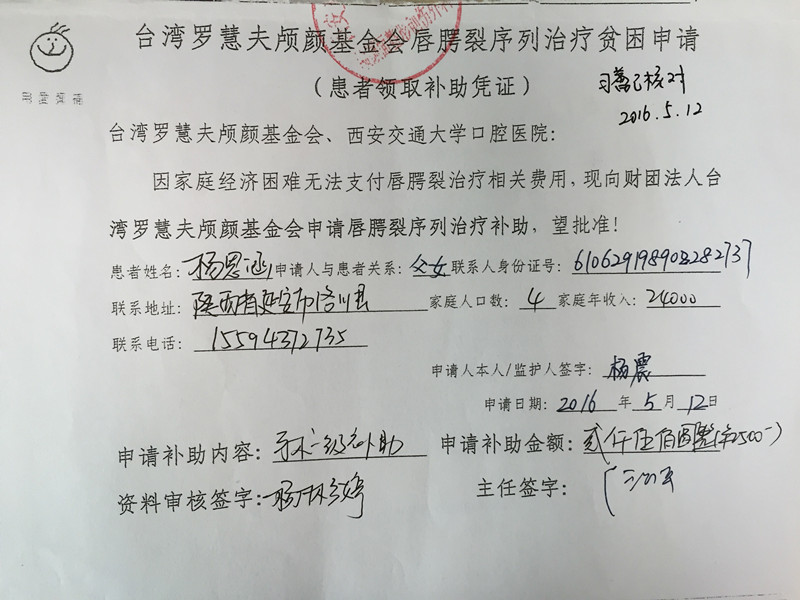 台湾罗慧夫颅颜基金会唇腭裂序列治疗贫困申请
（患者领取补助凭证）
已核对
2016.5.12
台湾罗慧夫颅颜基金会、西安交通大学口腔医院：
因家庭经济困难无法支付唇腭裂治疗相关费用，现向财团法人台
湾罗慧夫颅颜基金会申请唇腭裂序列治疗补助，望批准！
患者姓名：杨思涵 申请人与患者关系：父女 联系人身份证号：610629198903282737
联系地址：陕西省延安市洛川县 家庭人口数：4 家庭年收入：24000
联系电话：15594372735
申请人本人/监护人签字：杨震
申请日期：2016年5月12日
申请补助内容：手术一级补助 申请补助金额：贰仟伍佰圆整(¥2500-)
资料审核签字：
主任签字：